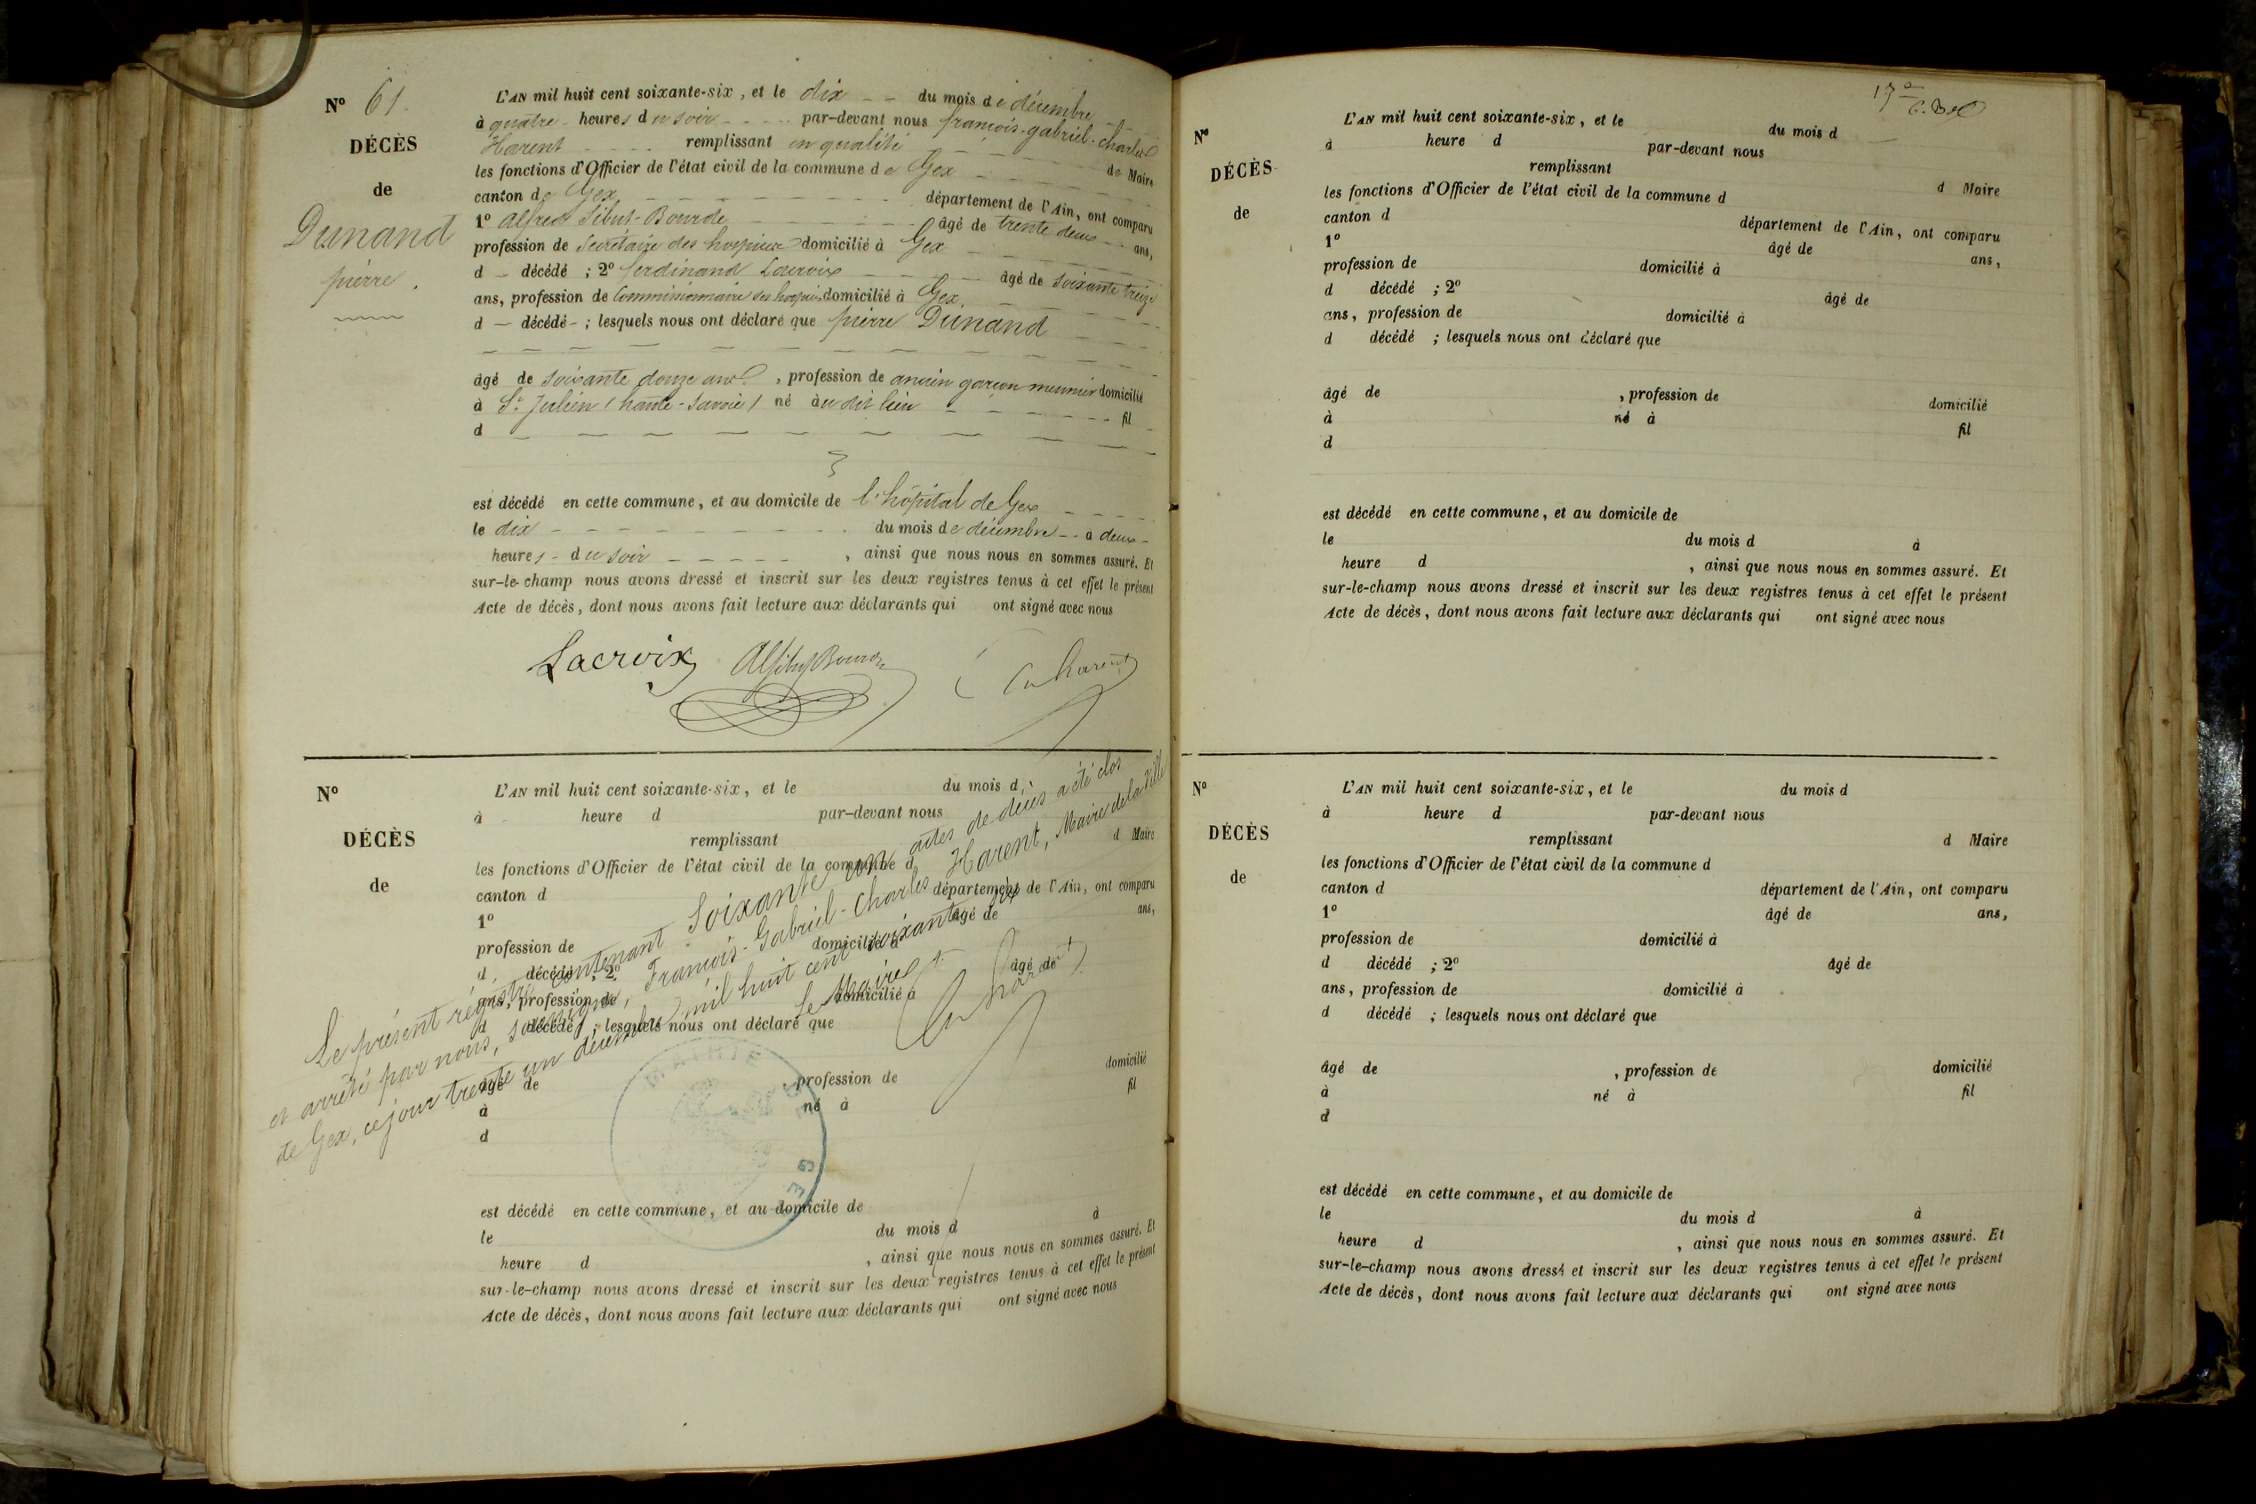 Nº 61.
DÉCÈS
de
Dunand
pierre.
L'AN mil huit cent soixante-six, et le dix du mois de décembre
à quatre heures du soir par-devant nous françois-gabriel-charles
Harent remplissant en qualité de Maire
les fonctions d'Officier de l'état civil de la commune de Gex
canton de Gex département de l'Ain, ont comparu
1º Alfred Sibut-Bourde âgé de trente deux ans,
profession de Secrétaire des hospices domicilié à Gex
d décédé ; 2º ferdinand Lacroix âgé de soixante treize
ans, profession de Commissionnaire des hospices domicilié à Gex
d décédé ; lesquels nous ont déclaré que pierre Dunand
âgé de soixante douze ans, profession de ancien garçon meunier domicilié
à St Julien (haute-Savoie) né audit lieu fil
d
est décédé en cette commune, et au domicile de l'hôpital de Gex
le dix du mois de décembre à deux
heures du soir, ainsi que nous nous en sommes assuré. Et
sur-le-champ nous avons dressé et inscrit sur les deux registres tenus à cet effet le présent
Acte de décès, dont nous avons fait lecture aux déclarants qui ont signé avec nous
Lacroix Al Sibut Bourde Ch harent
Nº
DÉCÈS
de
L'AN mil huit cent soixante-six, et le du mois d
à heure d par-devant nous
remplissant d Maire
les fonctions d'Officier de l'état civil de la commune d
canton d département de l'Ain, ont comparu
1º âgé de ans,
profession de domicilié à
d décédé ; 2º âgé de
ans, profession de domicilié à
d décédé ; lesquels nous ont déclaré que
âgé de , profession de domicilié
à né à fil
d
est décédé en cette commune, et au domicile de
le du mois d à
heure d , ainsi que nous nous en sommes assuré. Et
sur-le-champ nous avons dressé et inscrit sur les deux registres tenus à cet effet le présent
Acte de décès, dont nous avons fait lecture aux déclarants qui ont signé avec nous
Le présent régistre contenant Soixante un actes de décès a été clos
et arrêté par nous, soussigné, François-Gabriel-Charles Harent, Maire de la Ville
de Gex, ce jour trente un décembre mil huit cent soixante six
Le Maire
Ch harent
GEX
172
Nº
DÉCÈS
de
L'AN mil huit cent soixante-six, et le du mois d
à heure d par-devant nous
remplissant d Maire
les fonctions d'Officier de l'état civil de la commune d
canton d département de l'Ain, ont comparu
1º âgé de ans,
profession de domicilié à
d décédé ; 2º âgé de
ans, profession de domicilié à
d décédé ; lesquels nous ont déclaré que
âgé de , profession de domicilié
à né à fil
d
est décédé en cette commune, et au domicile de
le du mois d à
heure d , ainsi que nous nous en sommes assuré. Et
sur-le-champ nous avons dressé et inscrit sur les deux registres tenus à cet effet le présent
Acte de décès, dont nous avons fait lecture aux déclarants qui ont signé avec nous
Nº
DÉCÈS
de
L'AN mil huit cent soixante-six, et le du mois d
à heure d par-devant nous
remplissant d Maire
les fonctions d'Officier de l'état civil de la commune d
canton d département de l'Ain, ont comparu
1º âgé de ans,
profession de domicilié à
d décédé ; 2º âgé de
ans, profession de domicilié à
d décédé ; lesquels nous ont déclaré que
âgé de , profession de domicilié
à né à fil
d
est décédé en cette commune, et au domicile de
le du mois d à
heure d , ainsi que nous nous en sommes assuré. Et
sur-le-champ nous avons dressé et inscrit sur les deux registres tenus à cet effet le présent
Acte de décès, dont nous avons fait lecture aux déclarants qui ont signé avec nous